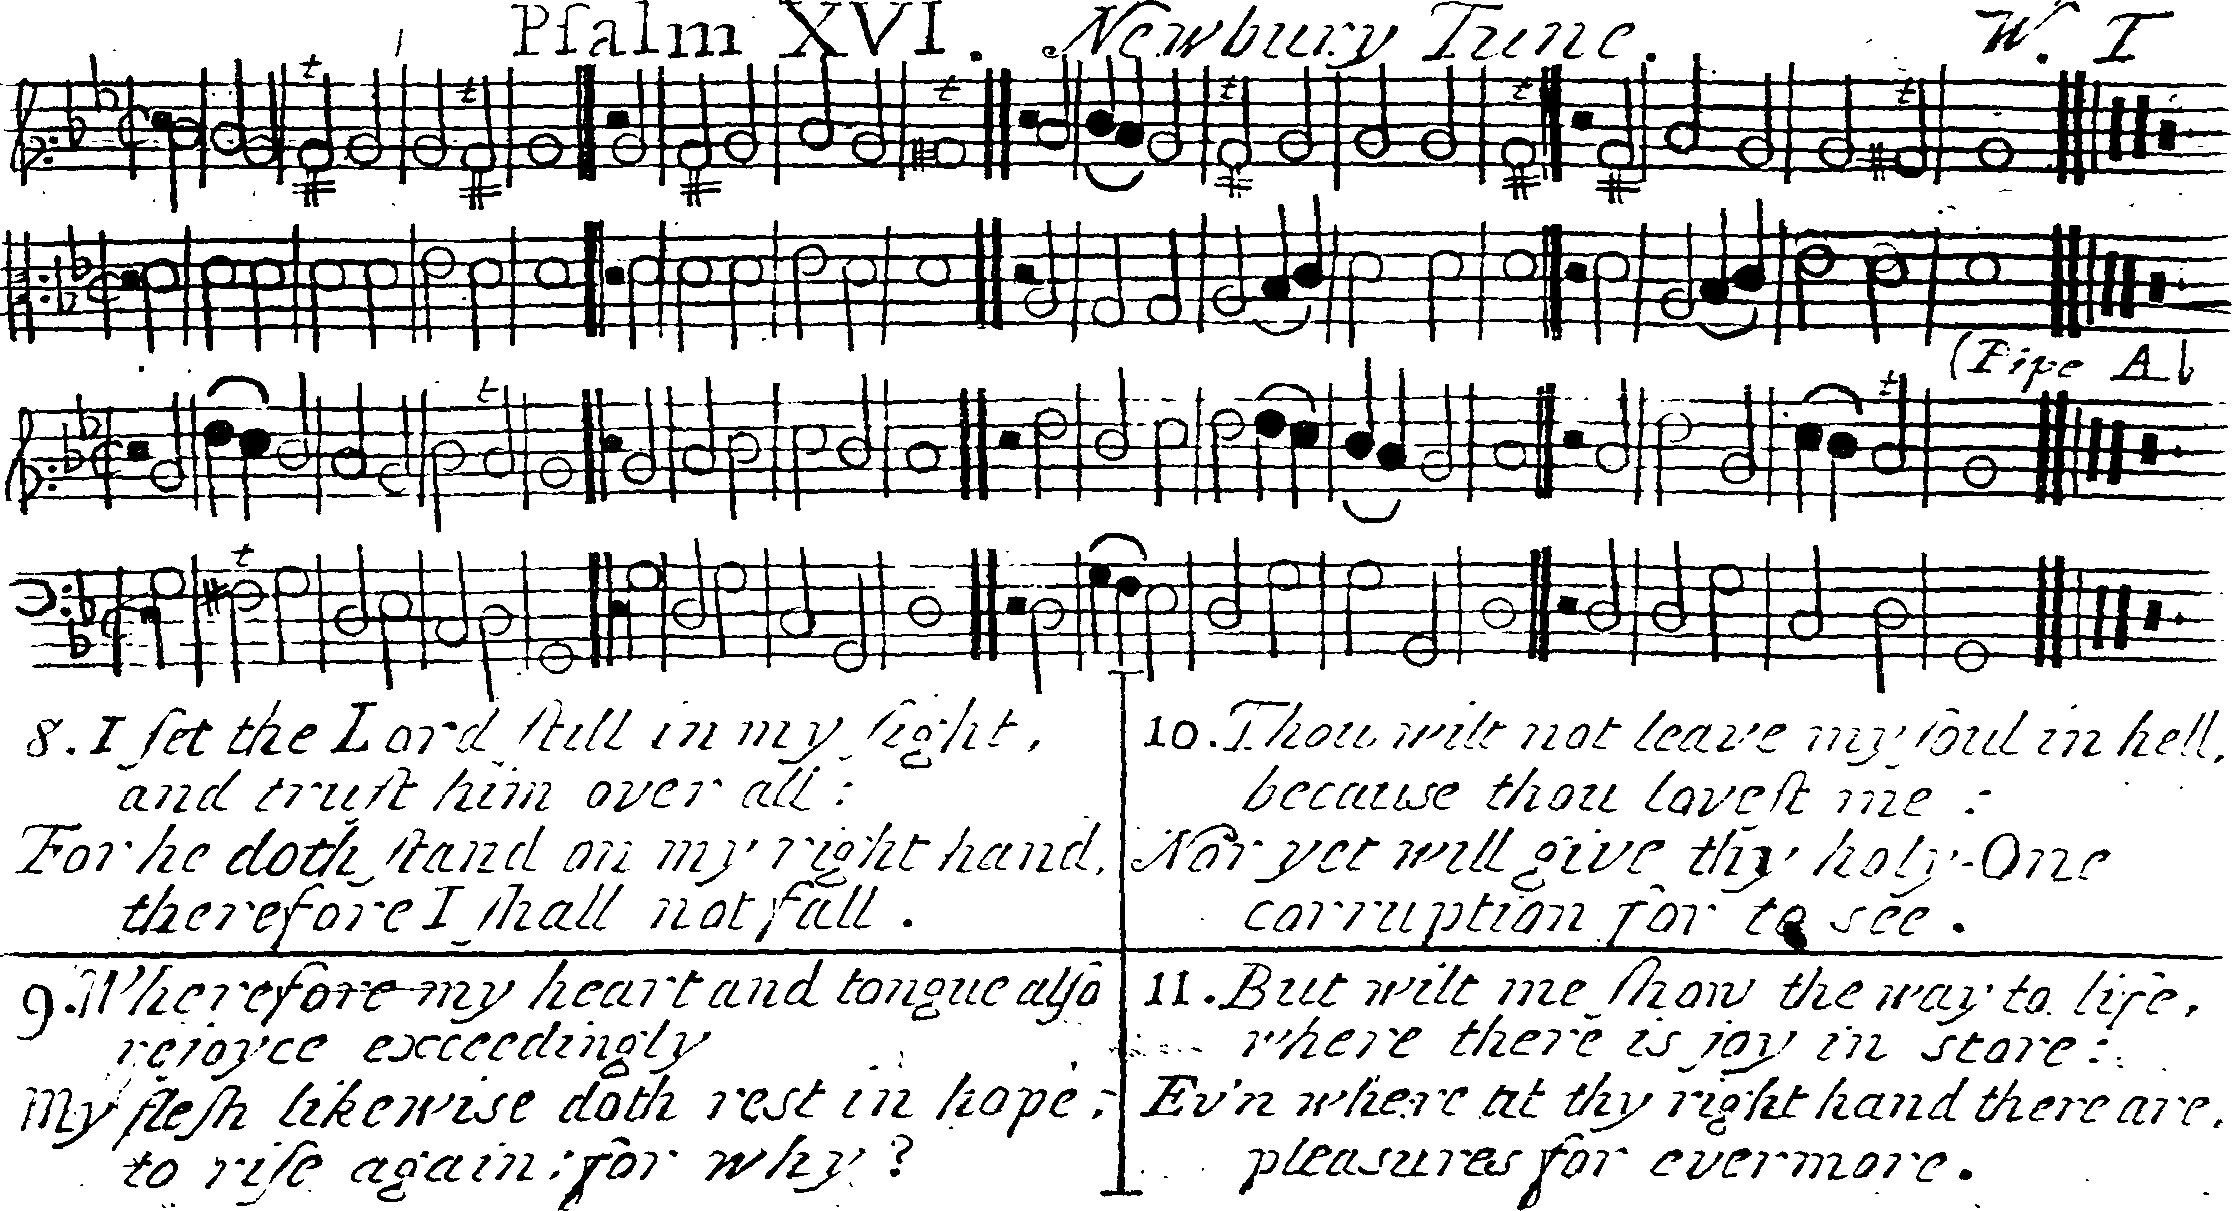 Pſalm XVI. Newbury Tune. W. T
(Pipe A b
8. I ſet the Lord ſtill in my ſight,
and truſt him over all:
For he doth ſtand on my right hand,
therefore I ſhall not fall.
9. Wherefore my heart and tongue alſo
rejoyce exceedingly
My fleſh likewise doth rest in hope;
to riſe again: for why?
10. Thou wilt not leave my ſoul in hell,
because thou loveſt me:
Nor yet will give thy holy-One
corruption for to see.
11. But wilt me ſhow the way to life,
where there is joy in store:
Ev'n where at thy right hand there are,
pleasures for evermore.